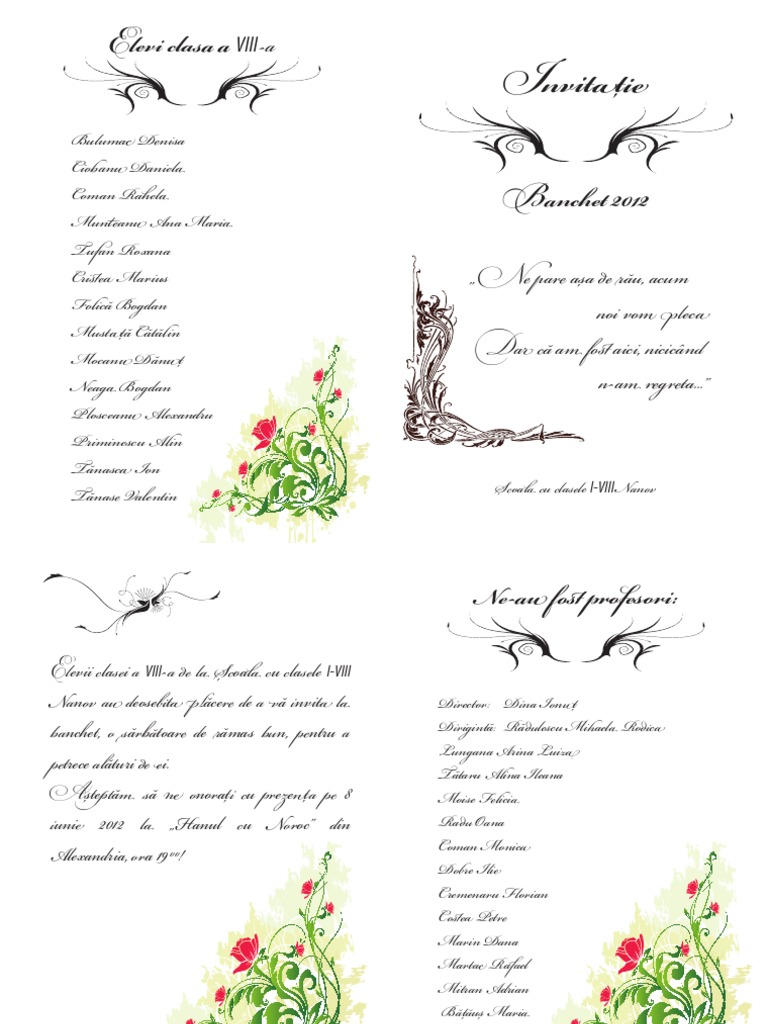 Elevi clasa a VIII-a
Bulumac Denisa
Ciobanu Daniela
Coman Rahela
Munteanu Ana Maria
Tufan Roxana
Cristea Marius
Folică Bogdan
Mustață Cătălin
Mocanu Dănuț
Neaga Bogdan
Plosceanu Alexandru
Priminescu Alin
Tănasca Ion
Tănase Valentin
Invitație
Banchet 2012
„Ne pare așa de rău, acum
noi vom pleca
Dar că am fost aici, nicicând
n-am regreta...”
Școala cu clasele I-VIII Nanov
Elevii clasei a VIII-a de la Școala cu clasele I-VIII
Nanov au deosebita plăcere de a vă invita la
banchet, o sărbătoare de rămas bun, pentru a
petrece alături de ei.
Așteptăm să ne onorați cu prezența pe 8
iunie 2012 la „Hanul cu Noroc” din
Alexandria, ora 19⁰⁰!
Ne-au fost profesori:
Director: Dina Ionuț
Dirigintă: Rădulescu Mihaela Rodica
Lungana Arina Luiza
Tătaru Alina Ileana
Moise Felicia
Radu Oana
Coman Monica
Dobre Ilie
Cremenaru Florian
Costea Petre
Marin Dana
Martac Rafael
Mitran Adrian
Bățăuș Maria